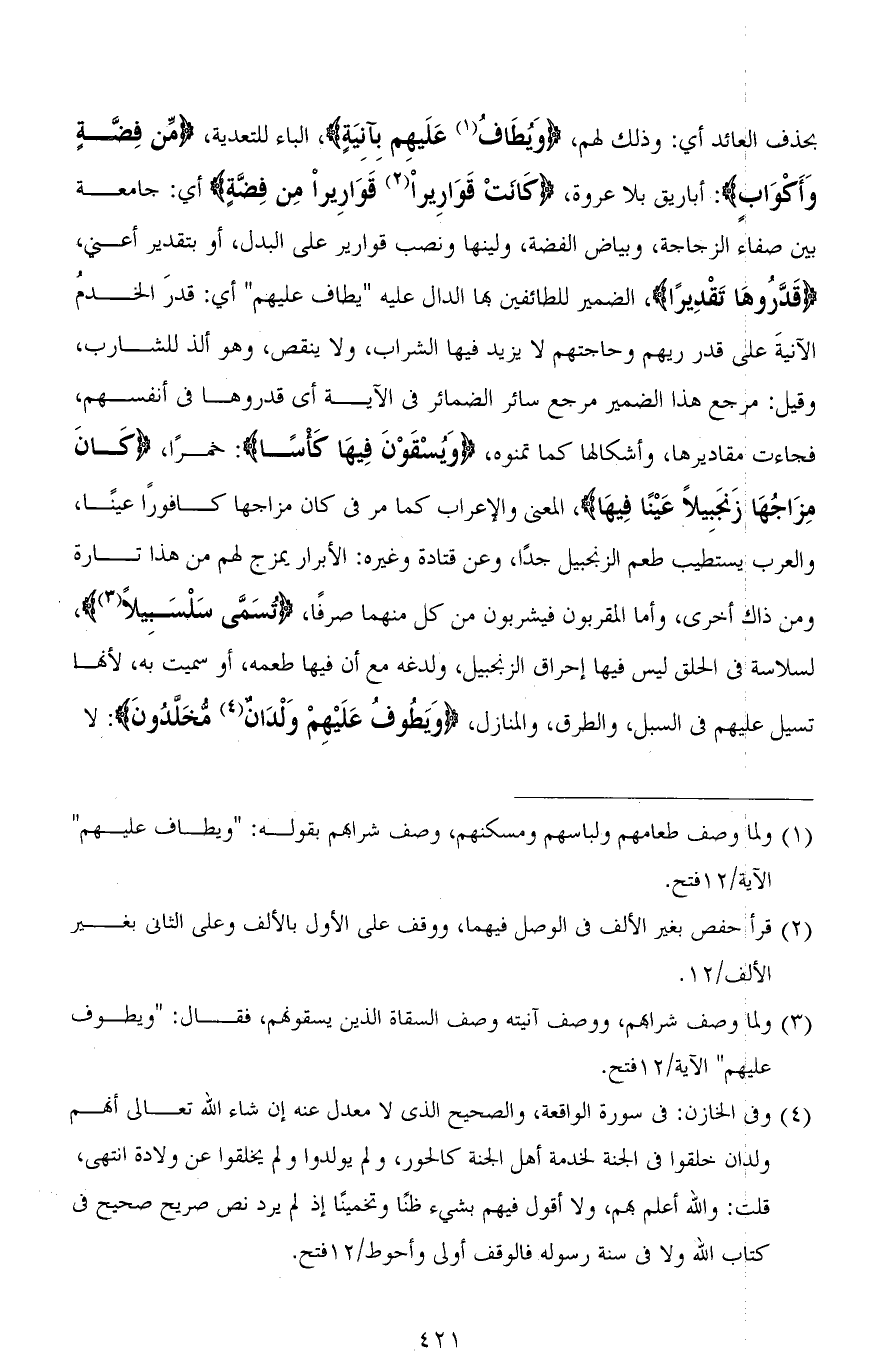 بحذف العائد أي: وذلك لهم، ﴿وَيُطَافُ(١) عَلَيهِم بِآنِيَةٍ﴾، الباء للتعدية، ﴿مِّن فِضَّةٍ
وَأَكْوَابٍ﴾: أباريق بلا عروة، ﴿كَانَتْ قَوَارِيراْ(٢) قَوَارِيراْ مِن فِضَّةٍ﴾ أي: جامعة
بين صفاء الزجاجة، وبياض الفضة، ولينها ونصب قوارير على البدل، أو بتقدير أعني،
﴿قَدَّرُوهَا تَقْدِيرًا﴾، الضمير للطائفين بها الدال عليه "يطاف عليهم" أي: قدرَ الخدمُ
الآنيةَ على قدر ريهم وحاجتهم لا يزيد فيها الشراب، ولا ينقص، وهو ألذ للشارب،
وقيل: مرجع هذا الضمير مرجع سائر الضمائر فى الآية أى قدروها فى أنفسهم،
فجاءت مقاديرها، وأشكالها كما تمنوه، ﴿وَيُسْقَوْنَ فِيهَا كَأْسًا﴾: خمرًا، ﴿كَانَ
مِزَاجُهَا زَنجَبِيلاً عَيْنًا فِيهَا﴾، المعنى والإعراب كما مر فى كان مزاجها كافورًا عينًا،
والعرب يستطيب طعم الزنجبيل جدًا، وعن قتادة وغيره: الأبرار يمزج لهم من هذا تارة
ومن ذاك أخرى، وأما المقربون فيشربون من كل منهما صرفًا، ﴿تُسَمَّى سَلْسَبِيلاً(٣)﴾،
لسلاسة فى الحلق ليس فيها إحراق الزنجبيل، ولدغه مع أن فيها طعمه، أو سميت به، لأنها
تسيل عليهم فى السبل، والطرق، والمنازل، ﴿وَيَطُوفُ عَلَيْهِمْ وِلْدَانٌ(٤) مُّخَلَّدُونَ﴾: لا
(١) ولما وصف طعامهم ولباسهم ومسكنهم، وصف شرابهم بقوله: "ويطاف عليهم"
الآية/١٢فتح.
(٢) قرأ حفص بغير الألف فى الوصل فيهما، ووقف على الأول بالألف وعلى الثانى بغير
الألف/١٢.
(٣) ولما وصف شرابهم، ووصف آنيته وصف السقاة الذين يسقونهم، فقال: "ويطوف
عليهم" الآية/١٢فتح.
(٤) وفى الخازن: فى سورة الواقعة، والصحيح الذى لا معدل عنه إن شاء الله تعالى أنهم
ولدان خلقوا فى الجنة لخدمة أهل الجنة كالحور، ولم يولدوا ولم يخلقوا عن ولادة انتهى،
قلت: والله أعلم بهم، ولا أقول فيهم بشيء ظنًا وتخمينًا إذ لم يرد نص صريح صحيح فى
كتاب الله ولا فى سنة رسوله فالوقف أولى وأحوط/١٢فتح.
٤٢١